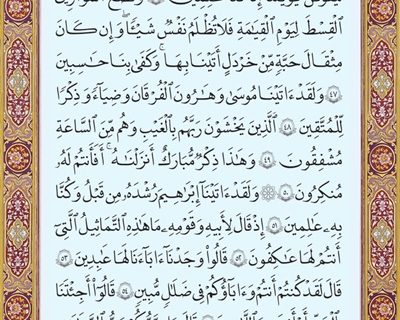 ٱلْقِسْطَ لِيَوْمِ ٱلْقِيَٰمَةِ فَلَا تُظْلَمُ نَفْسٌ شَيْـًٔا ۖ وَإِن كَانَ
مِثْقَالَ حَبَّةٍ مِّنْ خَرْدَلٍ أَتَيْنَا بِهَا ۗ وَكَفَىٰ بِنَا حَٰسِبِينَ
٤٧ وَلَقَدْ ءَاتَيْنَا مُوسَىٰ وَهَٰرُونَ ٱلْفُرْقَانَ وَضِيَآءً وَذِكْرًا
لِّلْمُتَّقِينَ ٤٨ ٱلَّذِينَ يَخْشَوْنَ رَبَّهُم بِٱلْغَيْبِ وَهُم مِّنَ ٱلسَّاعَةِ
مُشْفِقُونَ ٤٩ وَهَٰذَا ذِكْرٌ مُّبَارَكٌ أَنزَلْنَٰهُ ۚ أَفَأَنتُمْ لَهُۥ
مُنكِرُونَ ٥٠ ۞ وَلَقَدْ ءَاتَيْنَآ إِبْرَٰهِيمَ رُشْدَهُۥ مِن قَبْلُ وَكُنَّا
بِهِۦ عَٰلِمِينَ ٥١ إِذْ قَالَ لِأَبِيهِ وَقَوْمِهِۦ مَا هَٰذِهِ ٱلتَّمَاثِيلُ ٱلَّتِىٓ
أَنتُمْ لَهَا عَٰكِفُونَ ٥٢ قَالُوا۟ وَجَدْنَآ ءَابَآءَنَا لَهَا عَٰبِدِينَ ٥٣
قَالَ لَقَدْ كُنتُمْ أَنتُمْ وَءَابَآؤُكُمْ فِى ضَلَٰلٍ مُّبِينٍ ٥٤ قَالُوٓا۟ أَجِئْتَنَا